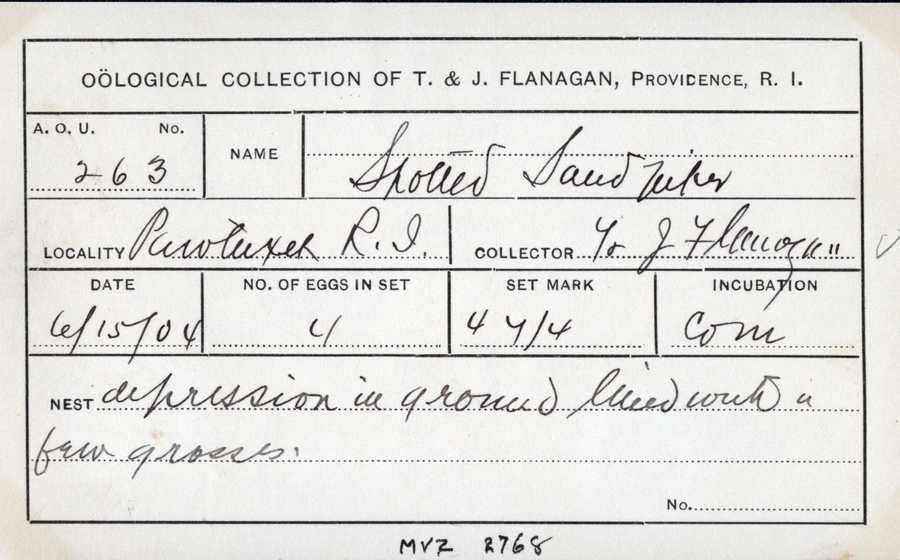 OÖLOGICAL COLLECTION OF T. & J. FLANAGAN, PROVIDENCE, R. I.
A. O. U. No.
263
NAME Spotted Sandpiper
LOCALITY Pawtuxet R.I. COLLECTOR J Flanagan
DATE NO. OF EGGS IN SET SET MARK INCUBATION
6/15/04 4 4 4/4 Com
NEST depression in ground lined with a
few grasses.
No.
MVZ 2768